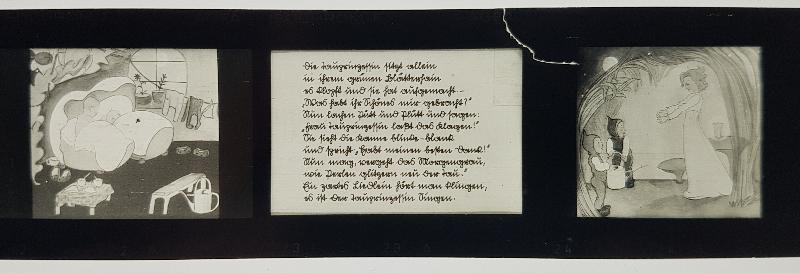 Die Tauprinzessin sitzt allein
in ihrem grünen Blätterhain
es klopft und sie hat aufgemacht. –
„Was habt ihr Schönes mir gebracht?"
Nun lachen Pütt und Plütt und sagen:
„Frau Tauprinzessin laßt das Klagen!"
Sie sieht die Kanne blink-blank
und spricht „Habt meinen besten Dank!"
Nun mag, vergeht das Morgengrau,
wie Perlen glitzern neu der Tau."
Ein zartes Liedlein hört man klingen,
es ist der Tauprinzessin Singen.